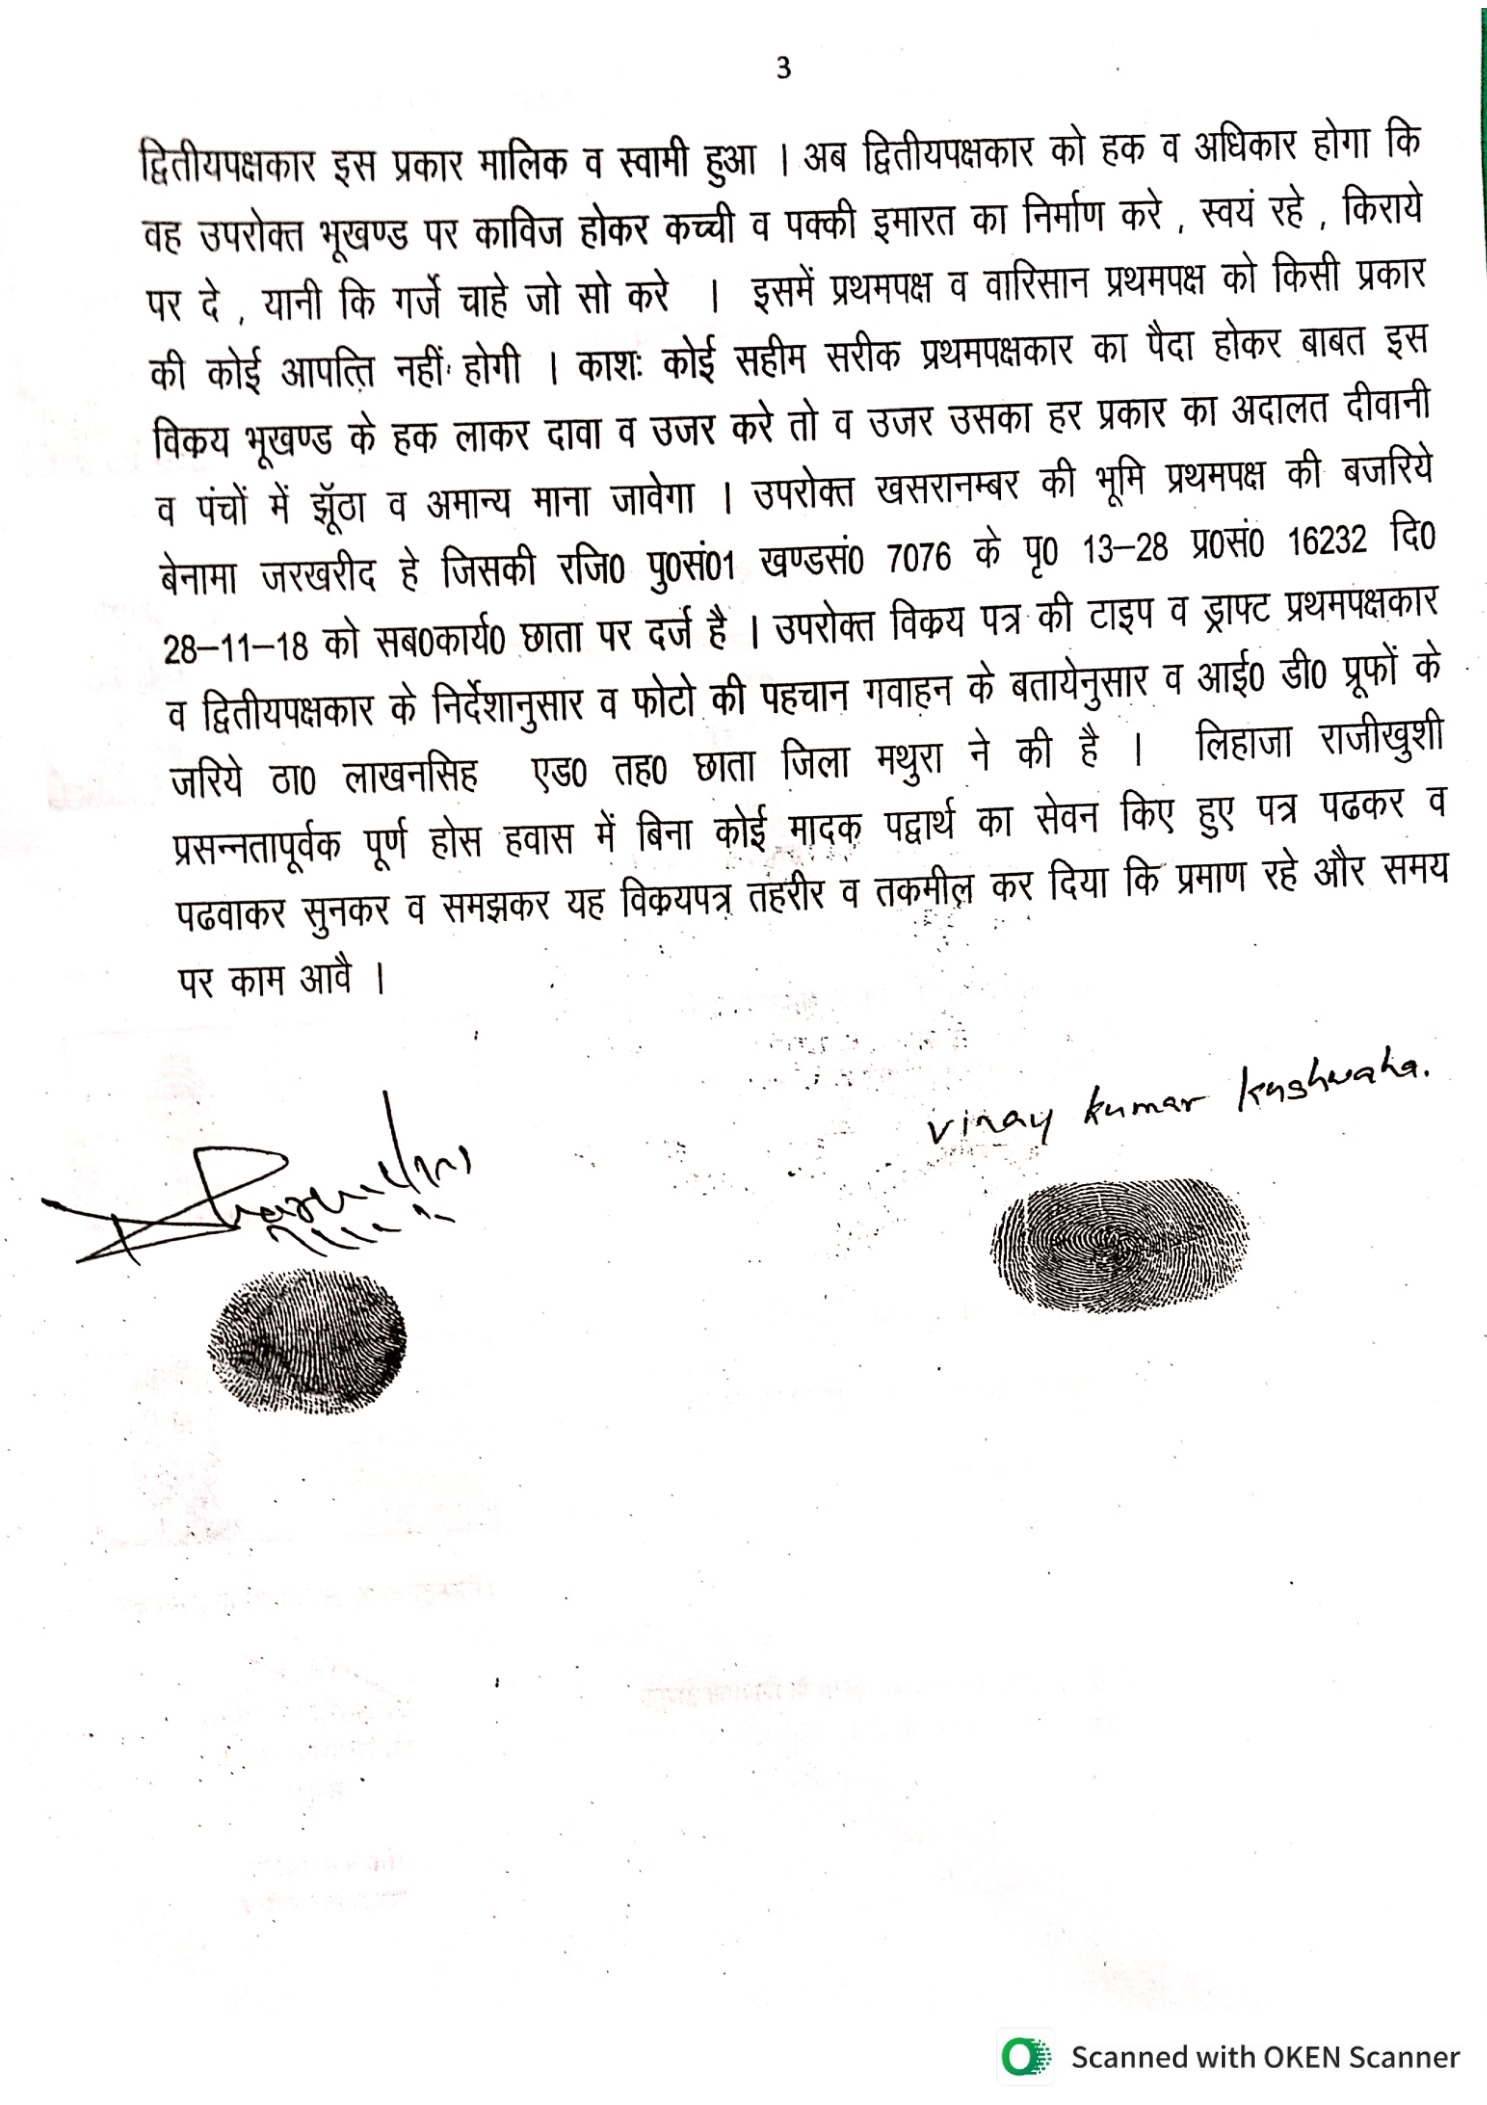 3
द्वितीयपक्षकार इस प्रकार मालिक व स्वामी हुआ । अब द्वितीयपक्षकार को हक व अधिकार होगा कि
वह उपरोक्त भूखण्ड पर काविज होकर कच्ची व पक्की इमारत का निर्माण करे , स्वयं रहे , किराये
पर दे , यानी कि गर्जे चाहे जो सो करे । इसमें प्रथमपक्ष व वारिसान प्रथमपक्ष को किसी प्रकार
की कोई आपत्ति नहीं होगी । काशः कोई सहीम सरीक प्रथमपक्षकार का पैदा होकर बाबत इस
विकय भूखण्ड के हक लाकर दावा व उजर करे तो व उजर उसका हर प्रकार का अदालत दीवानी
व पंचों में झूॅठा व अमान्य माना जावेगा । उपरोक्त खसरानम्बर की भूमि प्रथमपक्ष की बजरिये
बेनामा जरखरीद हे जिसकी रजि0 पु0सं01 खण्डसं0 7076 के पृ0 13–28 प्र0सं0 16232 दि0
28–11–18 को सब0कार्य0 छाता पर दर्ज है । उपरोक्त विकय पत्र की टाइप व ड्राफ्ट प्रथमपक्षकार
व द्वितीयपक्षकार के निर्देशानुसार व फोटो की पहचान गवाहन के बतायेनुसार व आई0 डी0 प्रूफों के
जरिये ठा0 लाखनसिह एड0 तह0 छाता जिला मथुरा ने की है । लिहाजा राजीखुशी
प्रसन्नतापूर्वक पूर्ण होस हवास में बिना कोई मादक पद्वार्थ का सेवन किए हुए पत्र पढकर व
पढवाकर सुनकर व समझकर यह विकयपत्र तहरीर व तकमील कर दिया कि प्रमाण रहे और समय
पर काम आवै ।
vinay kumar kushwaha.
Scanned with OKEN Scanner